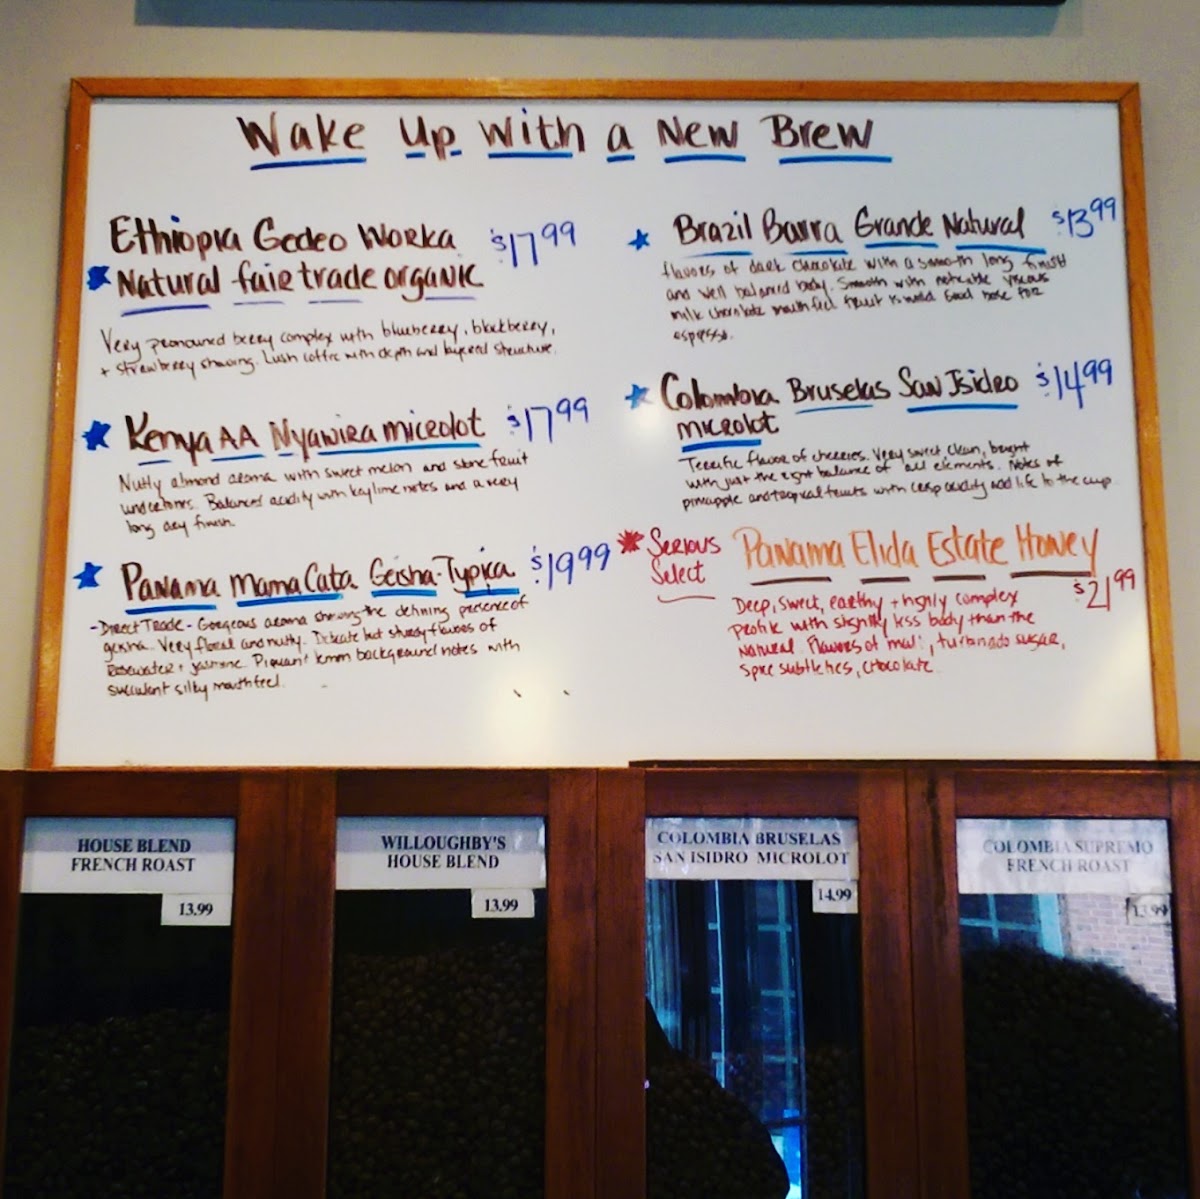 Wake Up With a New Brew
Ethiopia Gedeo Worka $17.99
Natural fair trade organic
Very pronouned berry complex with blueberry, blackberry,
+ strawberry showing. Lush coffee with depth and layered structure.
Kenya AA Nyawira microlot $17.99
Nutty almond aroma with sweet melon and stone fruit
undertones. Balanced acidity with key lime notes and a very
long dry finish.
Panama Mama Cata Geisha-Typica $19.99
-Direct Trade- Gorgeous aroma showing the defining presence of
geisha. Very floral and nutty. Delicate but sturdy flavors of
Rosewater + jasmine. Piquant lemon background notes with
succulent silky mouthfeel.
Brazil Barra Grande Natural $13.99
flavors of dark chocolate with a smooth long finish
and well balanced body. Smooth with noticable viscous
milk chocolate mouthfeel fruit is mild. Good base for
espresso.
Colombia Bruselas San Isidro $14.99
microlot
Terrific flavor of cherries. Very sweet clean, bright
with just the right balance of all elements. Notes of
pineapple and tropical fruits with crisp acidity add life to the cup.
Serious
Select
Panama Elida Estate Honey
$21.99
Deep, sweet, earthy + highly complex
profile with slightly less body than the
Natural. Flavors of , turbinado sugar,
spice subtleties, chocolate.
HOUSE BLEND
FRENCH ROAST
13.99
WILLOUGHBY'S
HOUSE BLEND
13.99
COLOMBIA BRUSELAS
SAN ISIDRO MICROLOT
14.99
COLOMBIA SUPREMO
FRENCH ROAST
13.99